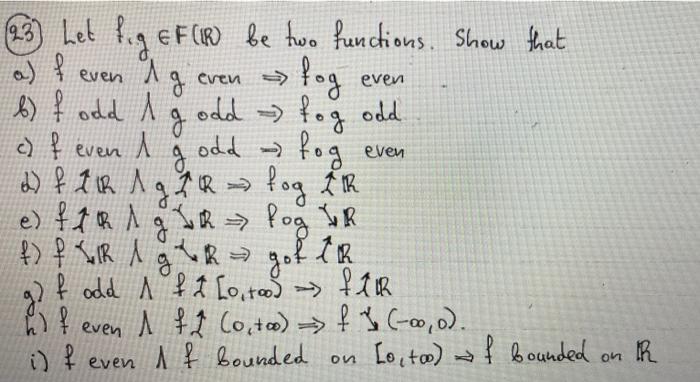 23) Let f,g ∈ F(ℝ) be two functions. Show that
a) f even ∧ g even ⇒ fog even
b) f odd ∧ g odd ⇒ fog odd
c) f even ∧ g odd ⇒ fog even
d) f ↑ ℝ ∧ g ↑ ℝ ⇒ fog ↑ ℝ
e) f ↑ ℝ ∧ g ↘ ℝ ⇒ fog ↘ ℝ
f) f ↘ ℝ ∧ g ↘ ℝ ⇒ gof ↑ ℝ
g) f odd ∧ f ↑ [0,+∞) ⇒ f ↑ ℝ
h) f even ∧ f ↑ (0,+∞) ⇒ f ↘ (-∞,0).
i) f even ∧ f bounded on [0,+∞) ⇒ f bounded on ℝ